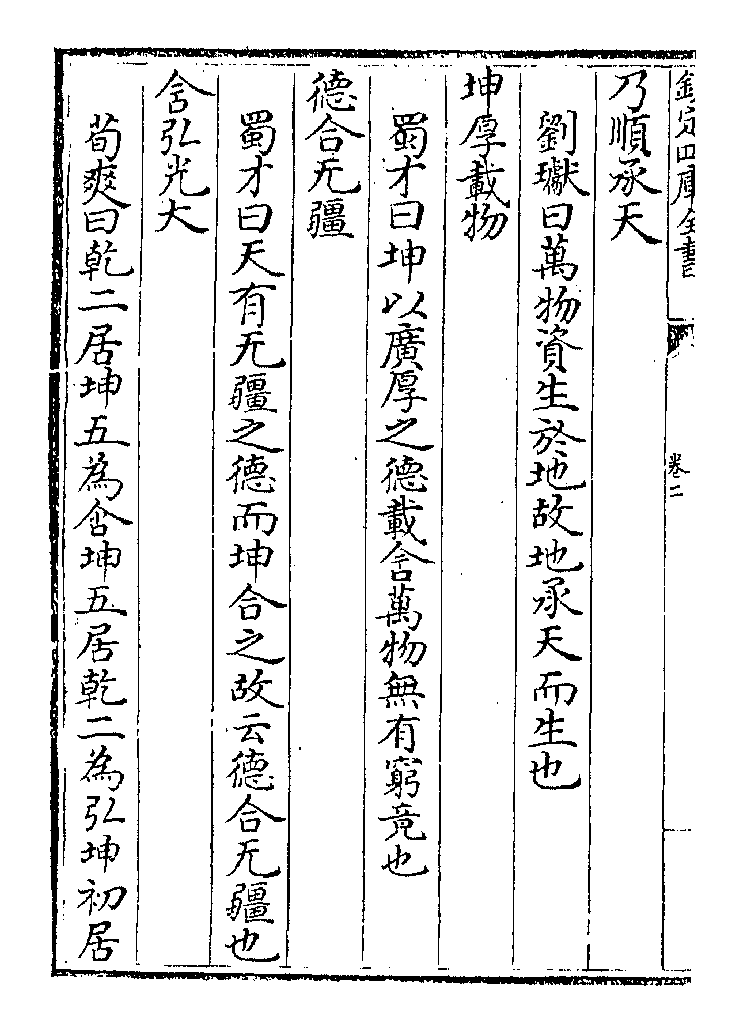 欽定四庫全書 卷二
乃順承天
劉瓛曰萬物資生於地故地承天而生也
坤厚載物
蜀才曰坤以廣厚之德載含萬物無有窮竟也
德合无疆
蜀才曰天有无疆之德而坤合之故云德合无疆也
含弘光大
荀爽曰乾二居坤五為含坤五居乾二為弘坤初居